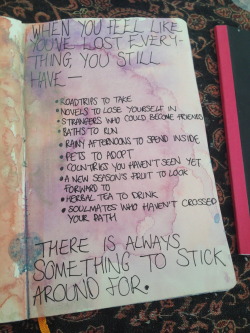 WHEN YOU FEEL LIKE
YOU'VE LOST EVERY-
THING, YOU STILL
HAVE —
• ROADTRIPS TO TAKE
• NOVELS TO LOSE YOURSELF IN
• STRANGERS WHO COULD BECOME FRIENDS
• BATHS TO RUN
• RAINY AFTERNOONS TO SPEND INSIDE
• PETS TO ADOPT
• COUNTRIES YOU HAVEN'T SEEN YET
• A NEW SEASON'S FRUIT TO LOOK
FORWARD TO
• HERBAL TEA TO DRINK
• SOULMATES WHO HAVEN'T CROSSED
YOUR PATH
THERE IS ALWAYS
SOMETHING TO STICK
AROUND FOR.